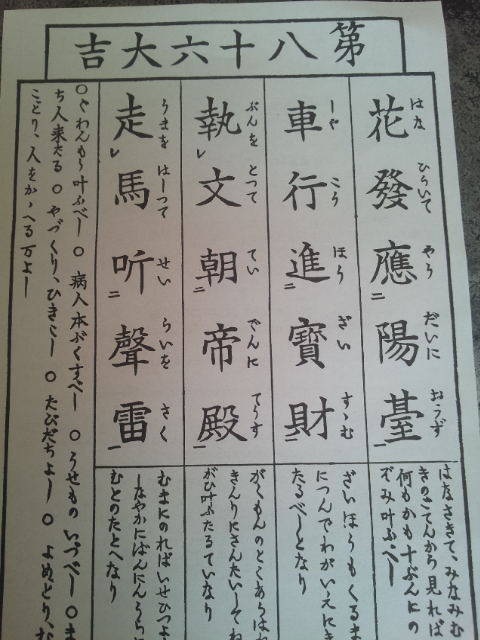 第八十六大吉
花發應陽臺
はな ひらいて やう だいに おうず
車行進寳財
しや こう ほう ざい すゝむ
執文朝帝殿
ぶんを とつて てい でんに てうす
走馬听聲雷
うまを はしつて せい らいを きく
はなさきて、みなみむ
きのごてんから見れば
何もかも十ぶんにの
ぞみ叶ふべし
ざいほうもくるま
につんでわがいえにき
たるべしとなり
がくもんのとくあらはれ
きんりにさんたいしてね
がひ叶ふたるていなり
むまにのればいせひつよ
しなやかにばんにんうらに
むとのたとへなり
○ぐわんもう叶ふべし ○病人本ぶくすべし ○うせものいづべし ○ま
ち人来たる ○やづくり、ひきこし ○たびだちよし ○よめどり、む
ことり、人をかゝへる万よし